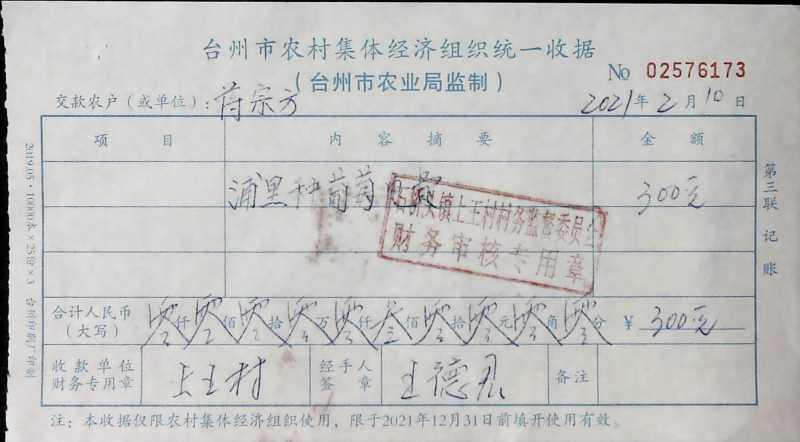 台州市农村集体经济组织统一收据
（台州市农业局监制）
No 02576173
交款农户（或单位）：蒋宗方
2021年2月10日
项目 内容摘要 金额
浦里种葡萄 300元
石桥头镇上王村村务监督委员会
财务审核专用章
合计人民币（大写） 零仟零佰零拾零万零仟叁佰零拾零元零角零分 ¥ 300元
收款单位财务专用章 上王村 经手人签章 王德君 备注
注：本收据仅限农村集体经济组织使用，限于2021年12月31日前填开使用有效。
第三联 记账
2019.05·10000本×25份×3 台州